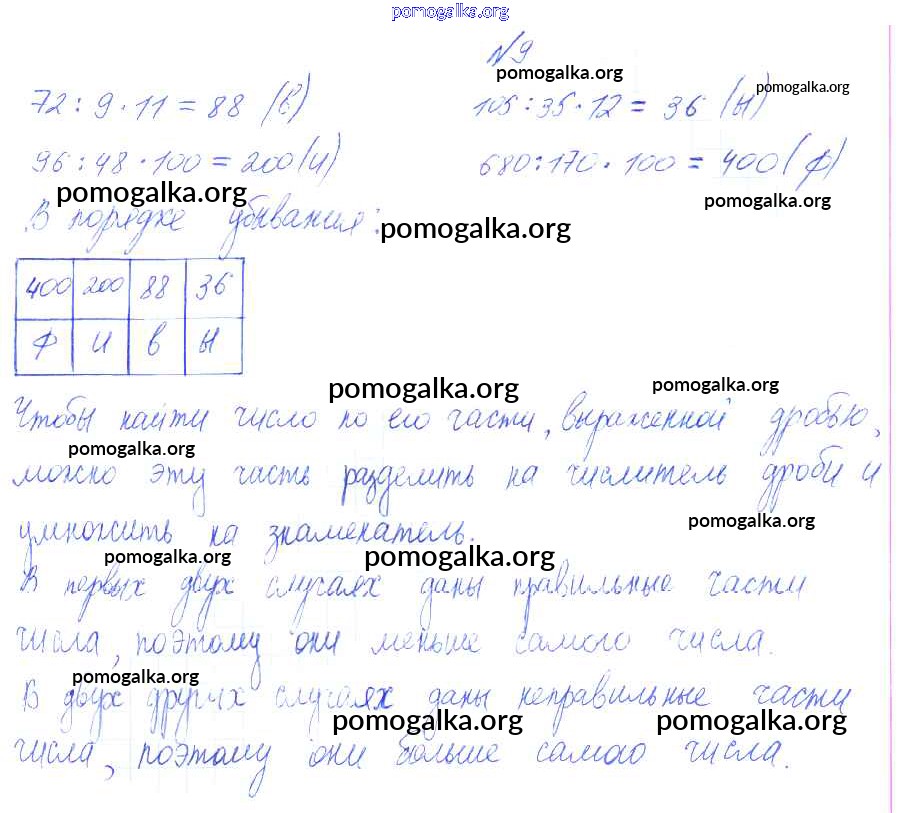 pomogalka.org
№9
pomogalka.org
pomogalka.org
72 : 9 · 11 = 88 (в) 105 : 35 · 12 = 36 (ы)
96 : 48 · 100 = 200 (и) 680 : 170 · 100 = 400 (ф)
pomogalka.org pomogalka.org
В порядке убывания:
pomogalka.org
400 200 88 36
Ф И В Ы
pomogalka.org pomogalka.org
Чтобы найти число по его части, выраженной дробью,
pomogalka.org
можно эту часть разделить на числитель дроби и
pomogalka.org
умножить на знаменатель.
pomogalka.org pomogalka.org
В первых двух случаях даны правильные части
числа, поэтому они меньше самого числа.
pomogalka.org
В двух других случаях даны неправильные части
pomogalka.org pomogalka.org
числа, поэтому они больше самого числа.